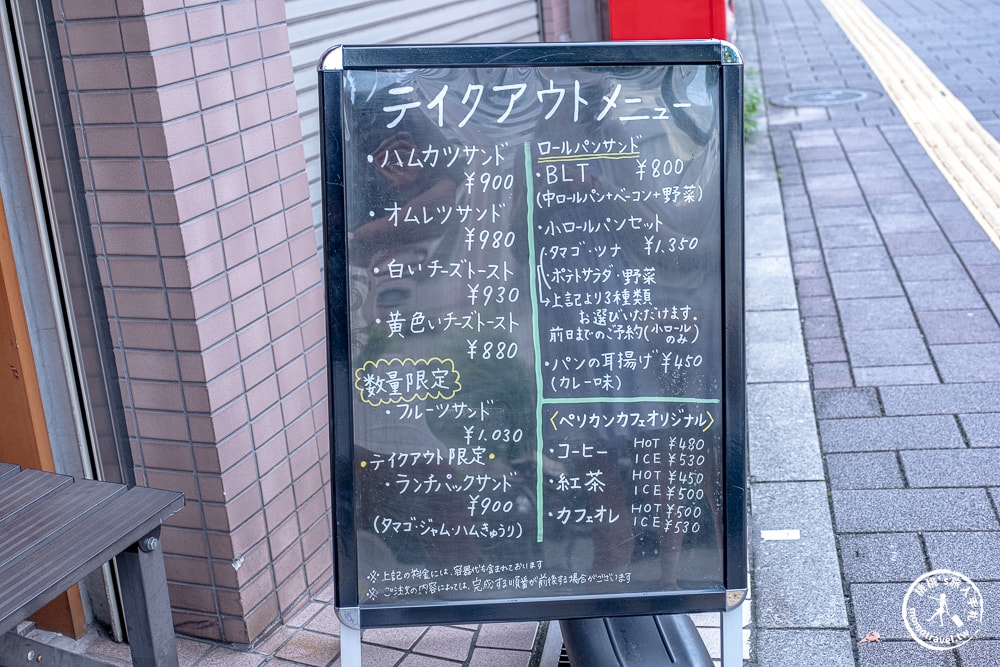 テイクアウトメニュー
・ハムカツサンド
¥900
・オムレツサンド
¥980
・白いチーズトースト
¥930
・黄色いチーズトースト
¥880
数量限定
・フルーツサンド
¥1.030
・テイクアウト限定・
・ランチパックサンド
¥900
(タマゴ・ジャム・ハムきゅうり)
ロールパンサンド
・BLT ¥800
(中ロールパン+ベーコン+野菜)
・小ロールパンセット
¥1.350
・タマゴ・ツナ
・ポテトサラダ・野菜
→上記より3種類
お選びいただけます.
前日までのご予約(小ロールのみ)
・パンの耳揚げ ¥450
(カレー味)
〈ペリカンカフェオリジナル〉
・コーヒー HOT ¥480
ICE ¥530
・紅茶 HOT ¥450
ICE ¥500
・カフェオレ HOT ¥500
ICE ¥530
※上記の料金には、容器代も含まれております
※ご注文の内容によっては、完成する順番が前後する場合がございます